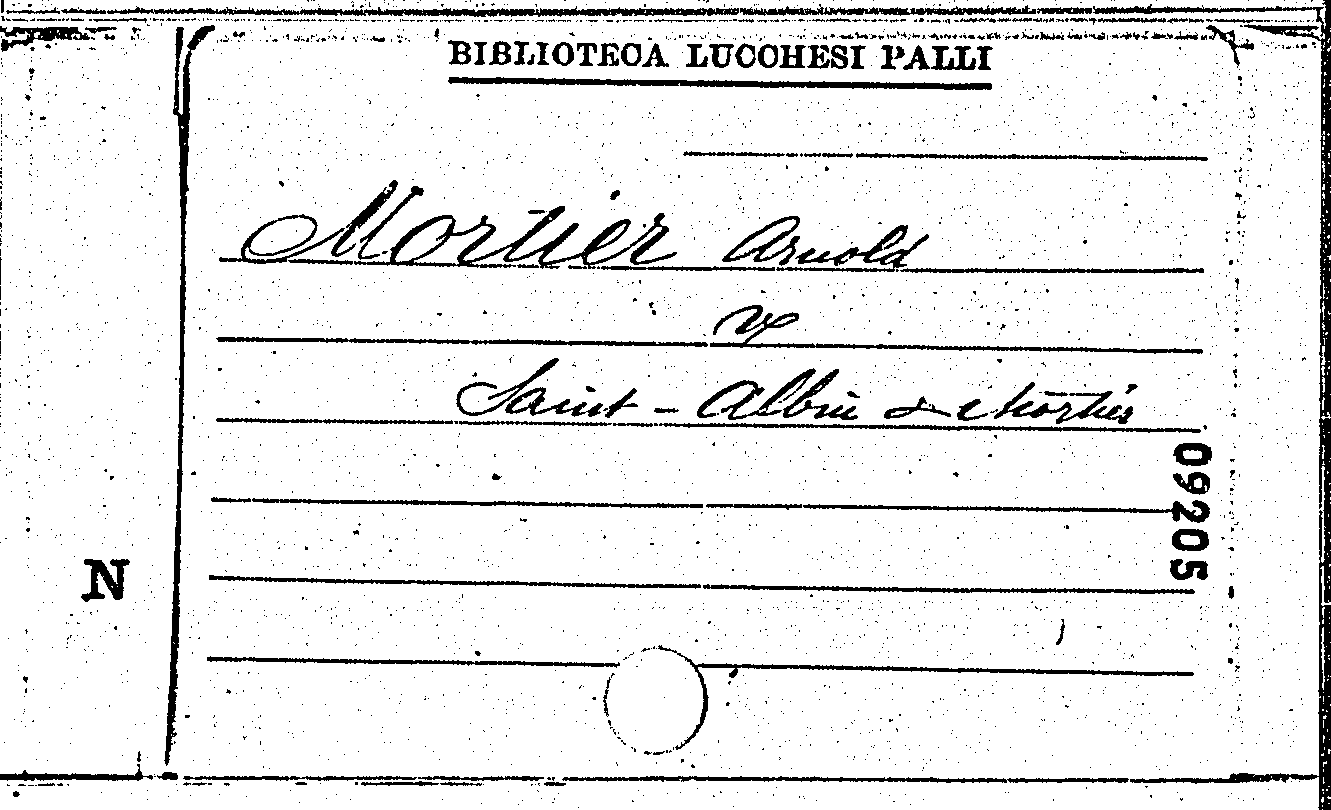 BIBLIOTECA LUCCHESI PALLI
Mortier Arnold
v
Saint-Albin & Mortier
09205
N